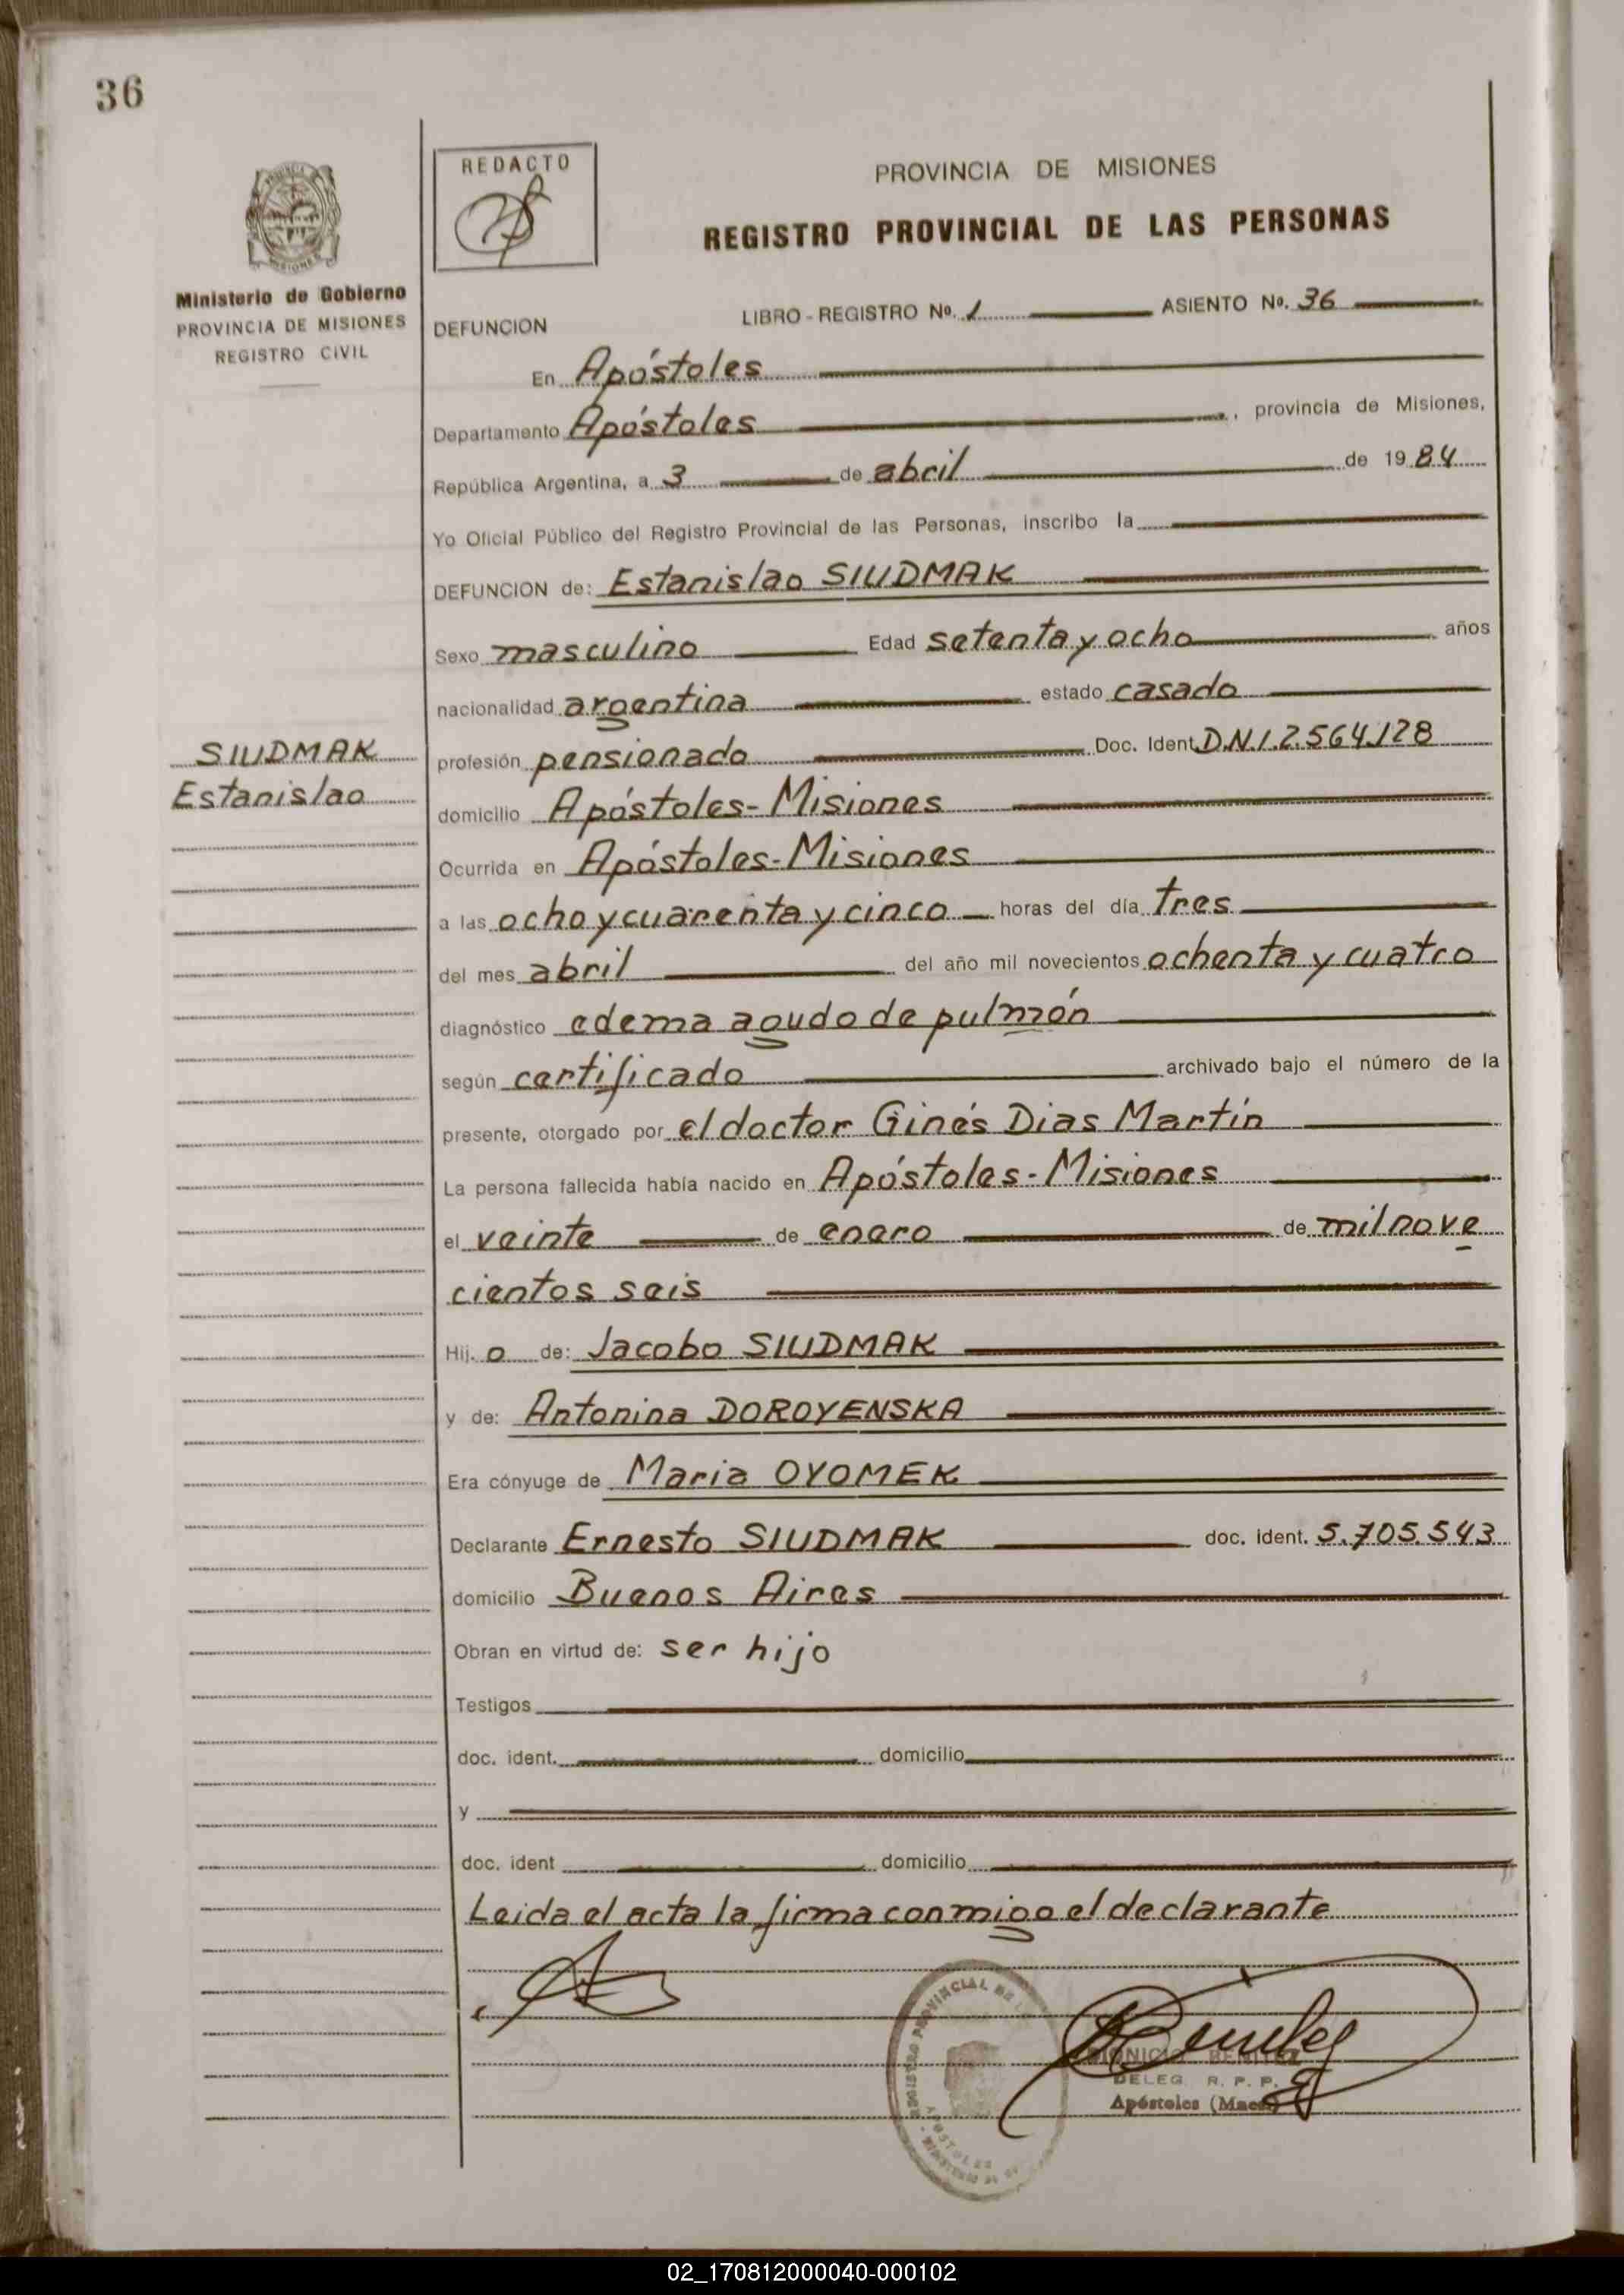 36
REDACTO
PROVINCIA DE MISIONES
REGISTRO PROVINCIAL DE LAS PERSONAS
Ministerio de Gobierno
PROVINCIA DE MISIONES
REGISTRO CIVIL
DEFUNCION
LIBRO - REGISTRO No. 1 ASIENTO No. 36
En Apóstoles
Departamento Apóstoles, provincia de Misiones,
República Argentina, a 3 de abril de 1984
Yo Oficial Público del Registro Provincial de las Personas, inscribo la
DEFUNCION de: Estanislao SIUDMAK
Sexo masculino Edad setenta y ocho años
nacionalidad argentina estado casado
SIUDMAK
Estanislao
profesión pensionado Doc. Ident. D.N.I. 2.564.128
domicilio Apóstoles-Misiones
Ocurrida en Apóstoles-Misiones
a las ocho y cuarenta y cinco horas del día tres
del mes abril del año mil novecientos ochenta y cuatro
diagnóstico edema agudo de pulmón
según certificado archivado bajo el número de la
presente, otorgado por el doctor Ginés Dias Martín
La persona fallecida había nacido en Apóstoles-Misiones
el veinte de enero de mil nove
cientos seis
Hij. o de: Jacobo SIUDMAK
y de: Antonina DOROYENSKA
Era cónyuge de Maria OYOMEK
Declarante Ernesto SIUDMAK doc. ident. 5.705.543
domicilio Buenos Aires
Obran en virtud de: ser hijo
Testigos
doc. ident. domicilio
y
doc. ident domicilio
Leida el acta la firma conmigo el declarante
REGISTRO PROVINCIAL DE
APOSTOLES
DIONICIO BENITEZ
DELEG. R. P. P.
Apóstoles (Mnes)
02_170812000040-000102